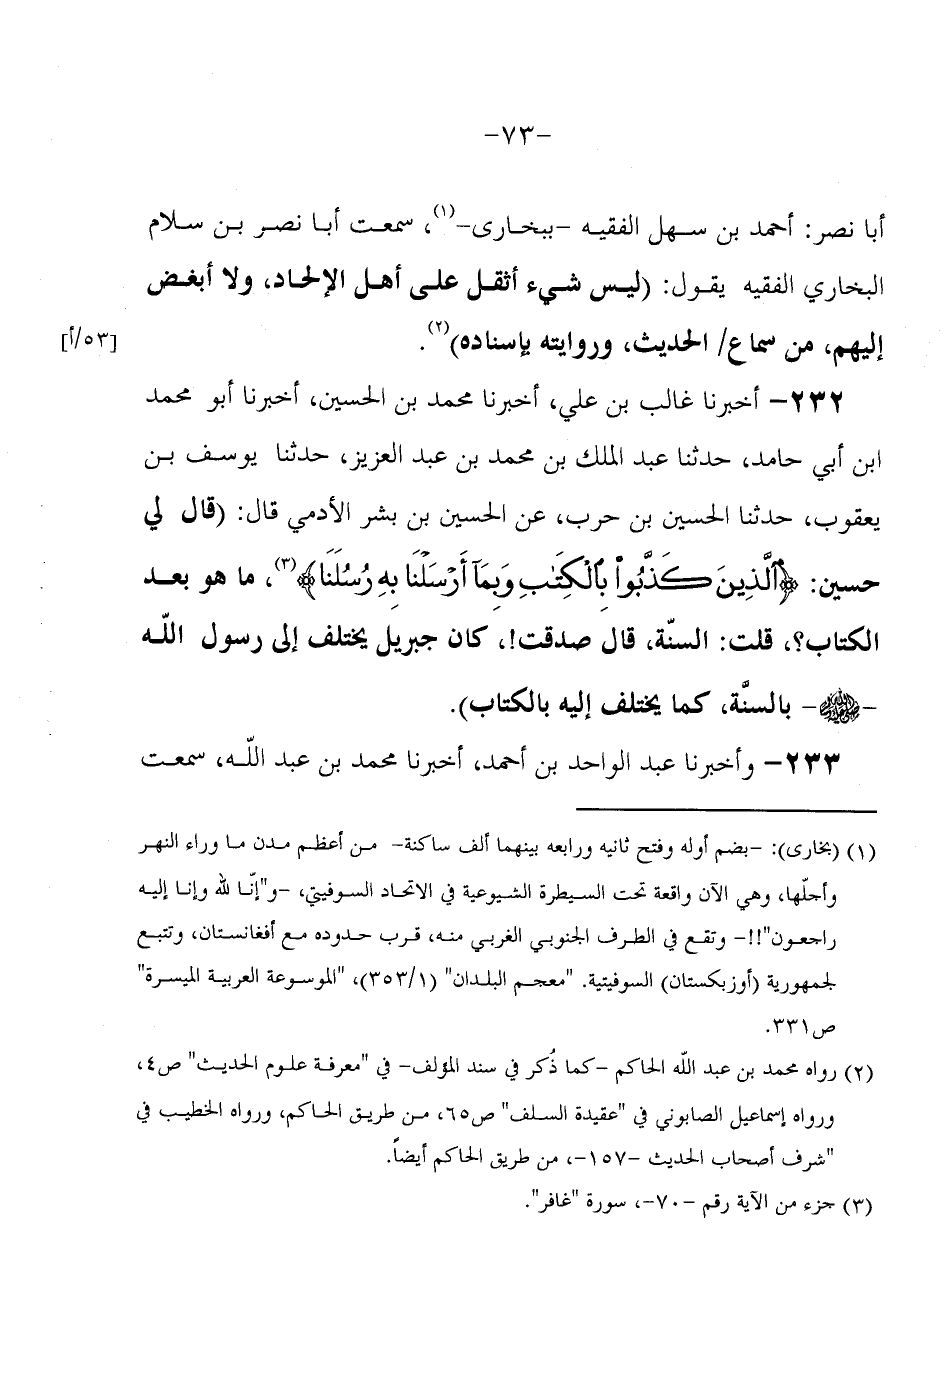 -٧٣-
أبا نصر: أحمد بن سهل الفقيه -ببخارى-(١)، سمعت أبا نصر بن سلام
البخاري الفقيه يقول: (ليس شيء أثقل على أهل الإلحاد، ولا أبغض
إليهم، من سماع/ الحديث، وروايته بإسناده)(٢). [٥٣/أ]
٢٣٢- أخبرنا غالب بن علي، أخبرنا محمد بن الحسين، أخبرنا أبو محمد
ابن أبي حامد، حدثنا عبد الملك بن محمد بن عبد العزيز، حدثنا يوسف بن
يعقوب، حدثنا الحسين بن حرب، عن الحسين بن بشر الأدمي قال: (قال لي
حسين: ﴿ٱلَّذِينَ كَذَّبُواْ بِٱلْكِتَٰبِ وَبِمَآ أَرْسَلْنَا بِهِۦ رُسُلَنَا﴾(٣)، ما هو بعد
الكتاب؟، قلت: السنّة، قال صدقت!، كان جبريل يختلف إلى رسول اللّه
-ﷺ- بالسنَّة، كما يختلف إليه بالكتاب).
٢٣٣- وأخبرنا عبد الواحد بن أحمد، أخبرنا محمد بن عبد اللّه، سمعت
(١) (بخارى): -بضم أوله وفتح ثانيه ورابعه بينهما ألف ساكنة- من أعظم مدن ما وراء النهر
وأجلّها، وهي الآن واقعة تحت السيطرة الشيوعية في الاتحاد السوفيتي، -و"إنّا لله وإنا إليه
راجعون"!!- وتقع في الطرف الجنوبي الغربي منه، قرب حدوده مع أفغانستان، وتتبع
لجمهورية (أوزبكستان) السوفيتية. "معجم البلدان" (٣٥٣/١)، "الموسوعة العربية الميسرة"
ص٣٣١.
(٢) رواه محمد بن عبد اللّه الحاكم -كما ذُكر في سند المؤلف- في "معرفة علوم الحديث" ص٤،
ورواه إسماعيل الصابوني في "عقيدة السلف" ص٦٥، من طريق الحاكم، ورواه الخطيب في
"شرف أصحاب الحديث -١٥٧-، من طريق الحاكم أيضاً.
(٣) جزء من الآية رقم -٧٠-، سورة "غافر".